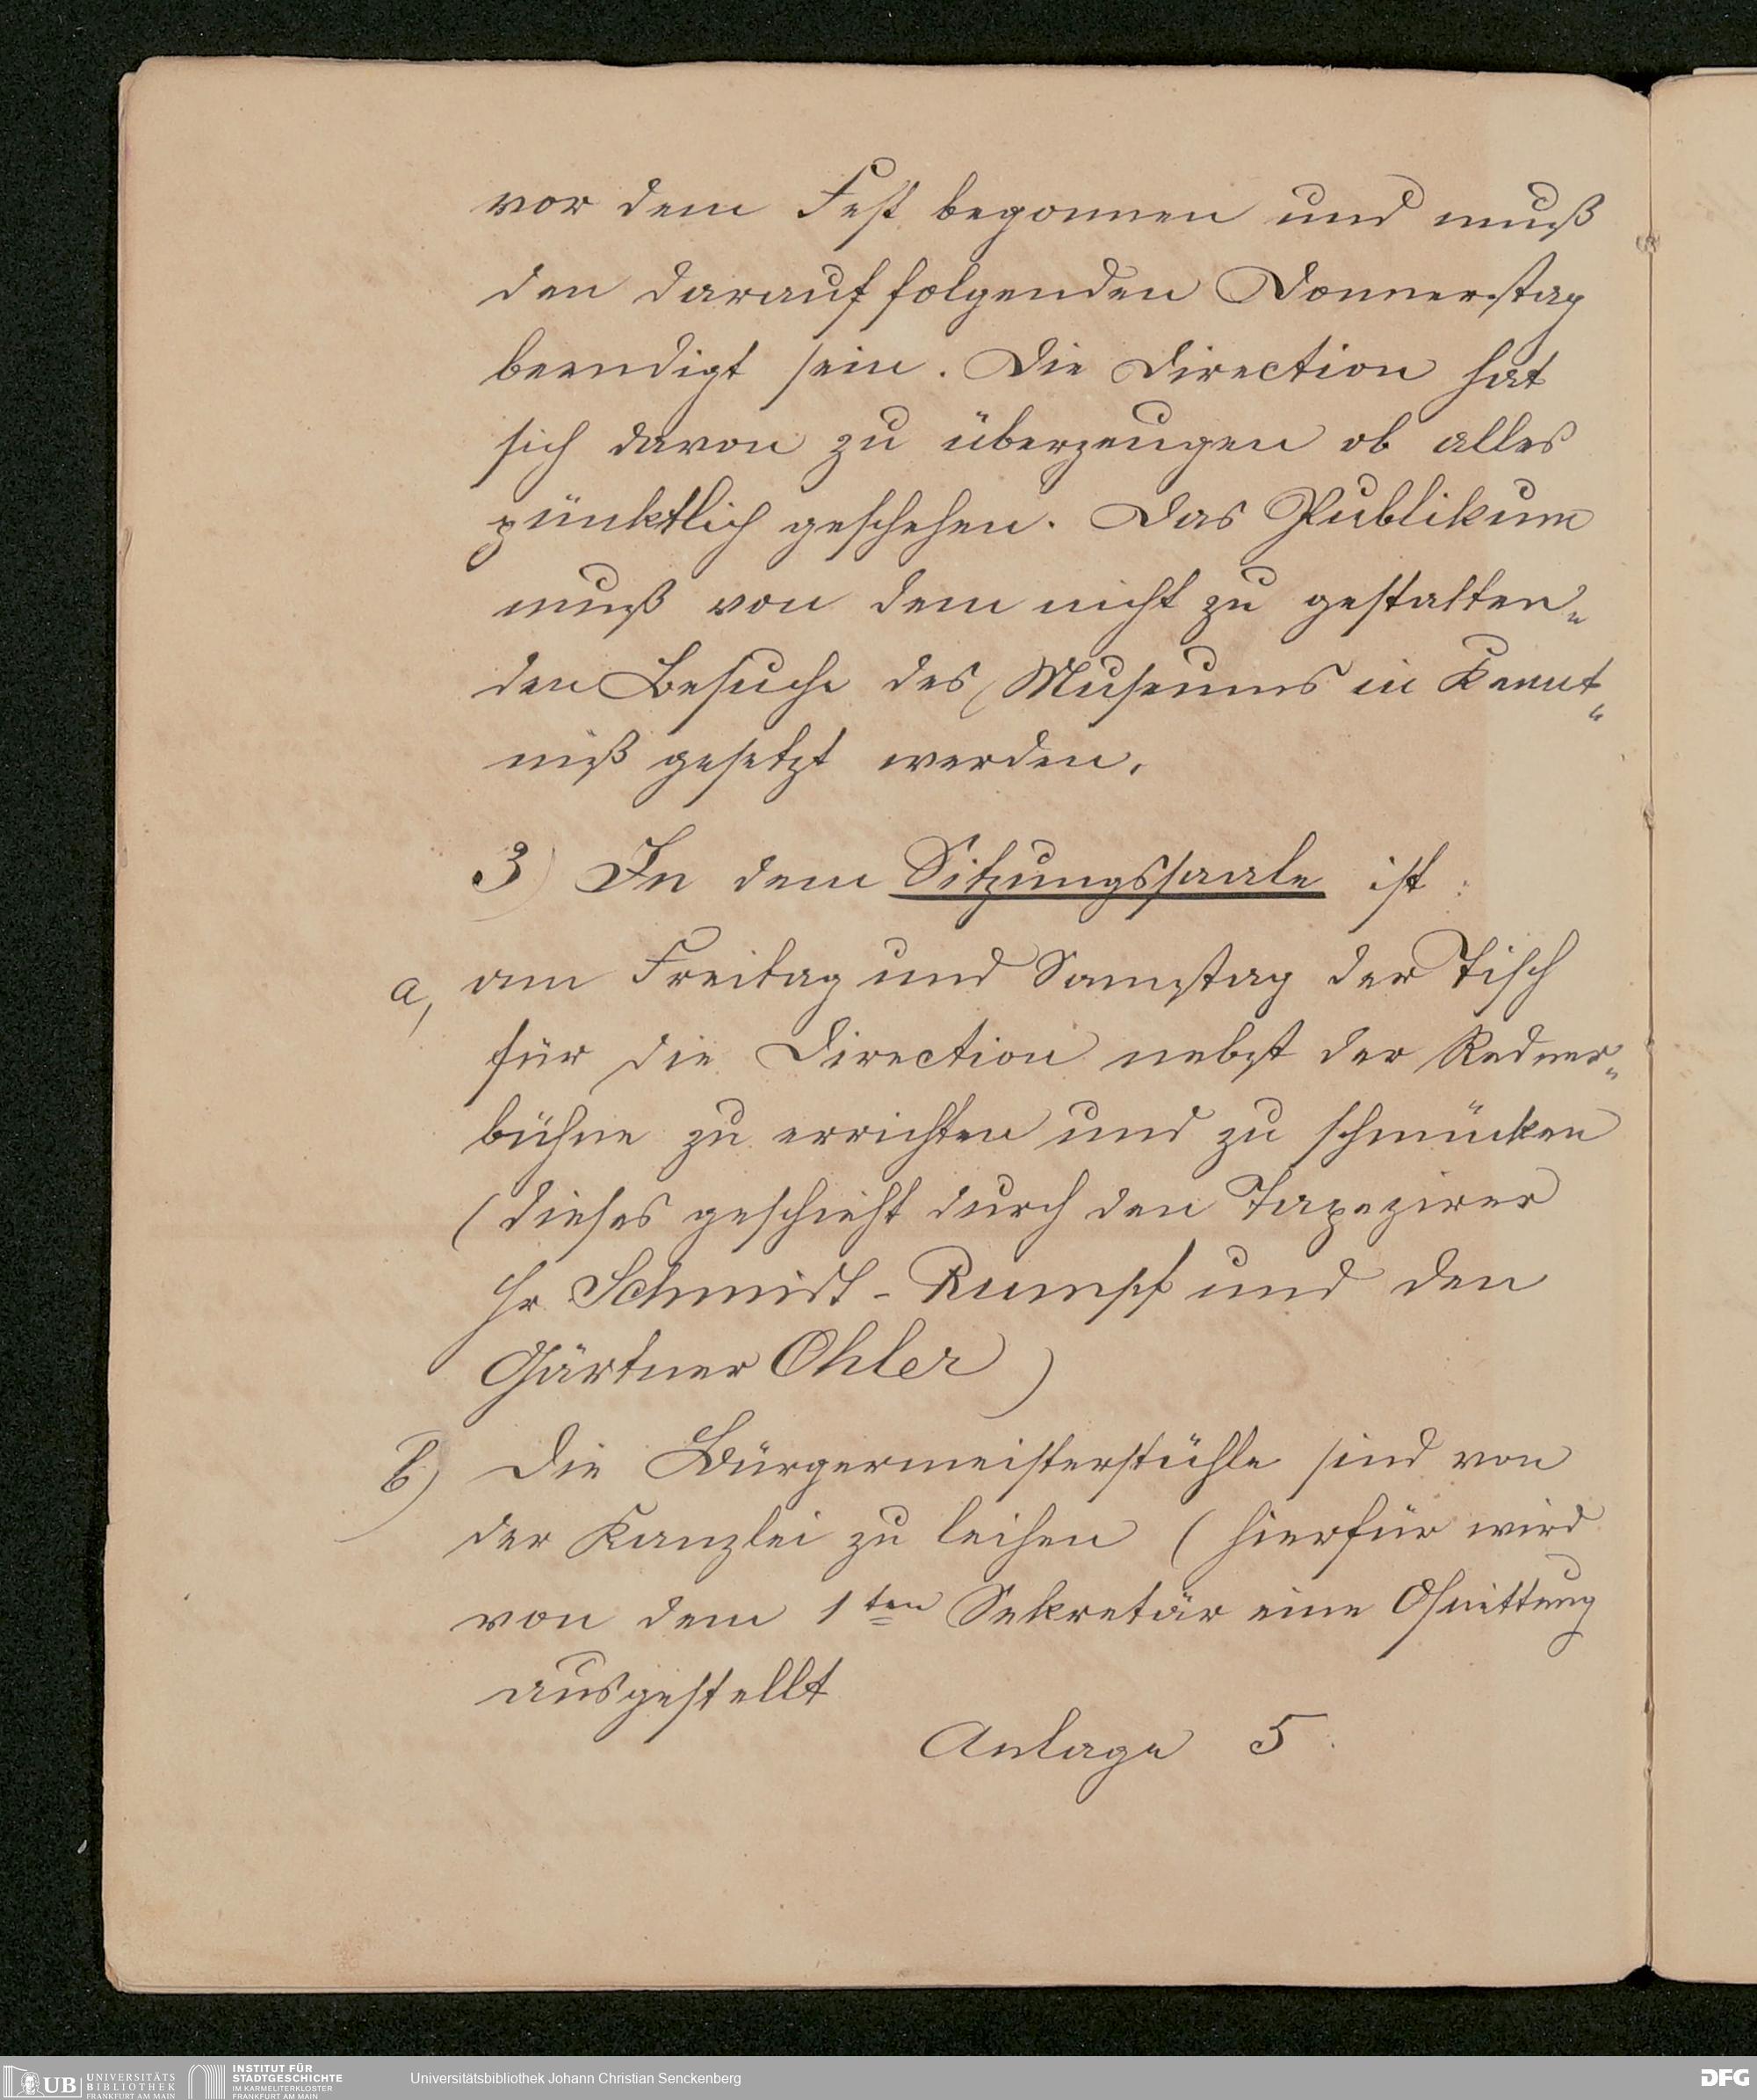 vor dem Fest begonnen und muß
den darauf folgenden Donnerstag
beendigt sein. Die Direction hat
sich davon zu überzeugen ob alles
pünktlich geschehen. Das Publikum
muß von dem nicht zu gestatten„
den Besuche des Museums in Kennt„
niß gesetzt werden.
3) In dem Sitzungssaale ist:
a, am Freitag und Samstag der Tisch
für die Direction nebst der Redner„
bühne zu errichten und zu schmücken
(dieses geschieht durch den Tapezirer
Hr Schmidt-Rumpf und den
Gärtner Ohler)
b) Die Bürgermeisterstühle sind von
der Kanzlei zu leihen (hierfür wird
von dem 1ten Sekretär eine Quittung
ausgestellt
Anlage 5.
UB UNIVERSITÄTS
BIBLIOTHEK
FRANKFURT AM MAIN
INSTITUT FÜR
STADTGESCHICHTE
IM KARMELITERKLOSTER
FRANKFURT AM MAIN
Universitätsbibliothek Johann Christian Senckenberg
DFG